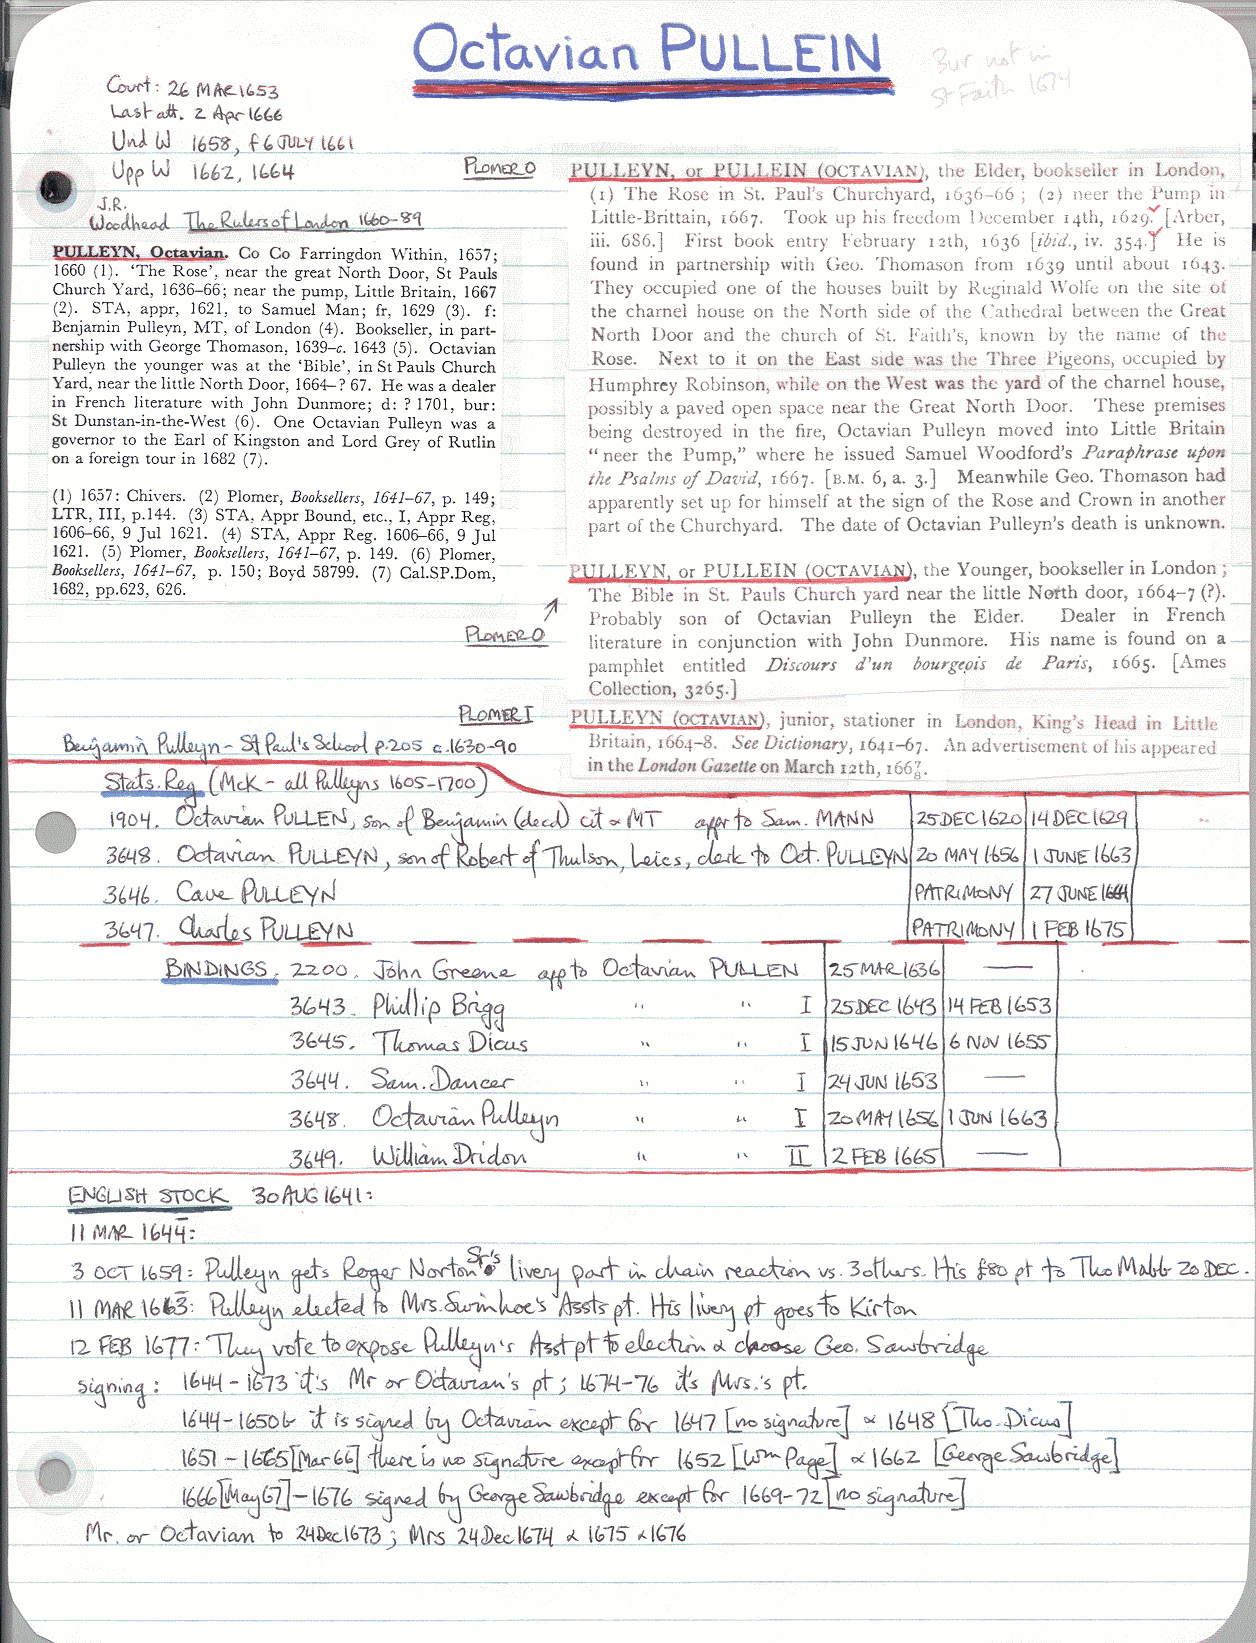 Octavian PULLEIN
Bur not in
St Faith 1674
Court: 26 MAR 1653
Last att. 2 Apr 1666
Und W 1658, f 6 JULY 1661
Upp W 1662, 1664
J.R.
Woodhead The Rulers of London 1660-89
PULLEYN, Octavian. Co Co Farringdon Within, 1657;
1660 (1). ‘The Rose’, near the great North Door, St Pauls
Church Yard, 1636–66; near the pump, Little Britain, 1667
(2). STA, appr, 1621, to Samuel Man; fr, 1629 (3). f:
Benjamin Pulleyn, MT, of London (4). Bookseller, in part-
nership with George Thomason, 1639–c. 1643 (5). Octavian
Pulleyn the younger was at the ‘Bible’, in St Pauls Church
Yard, near the little North Door, 1664–? 67. He was a dealer
in French literature with John Dunmore; d: ? 1701, bur:
St Dunstan-in-the-West (6). One Octavian Pulleyn was a
governor to the Earl of Kingston and Lord Grey of Rutlin
on a foreign tour in 1682 (7).
(1) 1657: Chivers. (2) Plomer, Booksellers, 1641–67, p. 149;
LTR, III, p.144. (3) STA, Appr Bound, etc., I, Appr Reg,
1606–66, 9 Jul 1621. (4) STA, Appr Reg. 1606–66, 9 Jul
1621. (5) Plomer, Booksellers, 1641–67, p. 149. (6) Plomer,
Booksellers, 1641–67, p. 150; Boyd 58799. (7) Cal.SP.Dom,
1682, pp.623, 626.
PLOMER O
PULLEYN, or PULLEIN (OCTAVIAN), the Elder, bookseller in London,
(1) The Rose in St. Paul's Churchyard, 1636–66; (2) neer the Pump in
Little-Brittain, 1667. Took up his freedom December 14th, 1629. [Arber,
iii. 686.] First book entry February 12th, 1636 [ibid., iv. 354.] He is
found in partnership with Geo. Thomason from 1639 until about 1643.
They occupied one of the houses built by Reginald Wolfe on the site of
the charnel house on the North side of the Cathedral between the Great
North Door and the church of St. Faith's, known by the name of the
Rose. Next to it on the East side was the Three Pigeons, occupied by
Humphrey Robinson, while on the West was the yard of the charnel house,
possibly a paved open space near the Great North Door. These premises
being destroyed in the fire, Octavian Pulleyn moved into Little Britain
“neer the Pump,” where he issued Samuel Woodford's Paraphrase upon
the Psalms of David, 1667. [B.M. 6, a. 3.] Meanwhile Geo. Thomason had
apparently set up for himself at the sign of the Rose and Crown in another
part of the Churchyard. The date of Octavian Pulleyn's death is unknown.
PLOMER O
PULLEYN, or PULLEIN (OCTAVIAN), the Younger, bookseller in London;
The Bible in St. Pauls Church yard near the little North door, 1664–7 (?).
Probably son of Octavian Pulleyn the Elder. Dealer in French
literature in conjunction with John Dunmore. His name is found on a
pamphlet entitled Discours d'un bourgeois de Paris, 1665. [Ames
Collection, 3265.]
PLOMER I
PULLEYN (OCTAVIAN), junior, stationer in London, King's Head in Little
Britain, 1664–8. See Dictionary, 1641–67. An advertisement of his appeared
in the London Gazette on March 12th, 1667.
Benjamin Pulleyn - St Paul's School p.205 c.1630-90
Stats. Reg (McK - all Pulleyns 1605-1700)
1904. Octavian PULLEN, son of Benjamin (decd) cit & MT appr to Sam. MANN 25 DEC 1620 14 DEC 1629
3648. Octavian PULLEYN, son of Robert of Thulson, Leics, clerk to Oct. PULLEYN 20 MAY 1656 1 JUNE 1663
3646. Cave PULLEYN PATRIMONY 27 JUNE 1664
3647. Charles PULLEYN PATRIMONY 1 FEB 1675
BINDINGS. 2200. John Greene app to Octavian PULLEN 25 MAR 1636 —
3643. Phillip Brigg " " I 25 DEC 1643 14 FEB 1653
3645. Thomas Dicus " " I 15 JUN 1646 6 NOV 1655
3644. Sam. Dancer " " I 24 JUN 1653 —
3648. Octavian Pulleyn " " I 20 MAY 1656 1 JUN 1663
3649. William Dridon " " II 2 FEB 1665 —
ENGLISH STOCK 30 AUG 1641:
11 MAR 1644:
3 OCT 1659: Pulleyn gets Roger Norton Sr's livery part in chain reaction vs. 3 others. His £80 pt to Tho Mabb 20 DEC.
11 MAR 1663: Pulleyn elected to Mrs. Swinhoe's Assts pt. His livery pt goes to Kirton
12 FEB 1677: They vote to expose Pulleyn's Asst pt to election & choose Geo. Sawbridge
signing: 1644-1673 it's Mr or Octavian's pt; 1674-76 it's Mrs.'s pt.
1644-1650 it is signed by Octavian except for 1647 [no signature] & 1648 [Tho. Dicus]
1651-1665 [Mar 66] there is no signature except for 1652 [Wm Page] & 1662 [George Sawbridge]
1666 [May 67]-1676 signed by George Sawbridge except for 1669-72 [no signature]
Mr. or Octavian to 24 Dec 1673; Mrs 24 Dec 1674 & 1675 & 1676